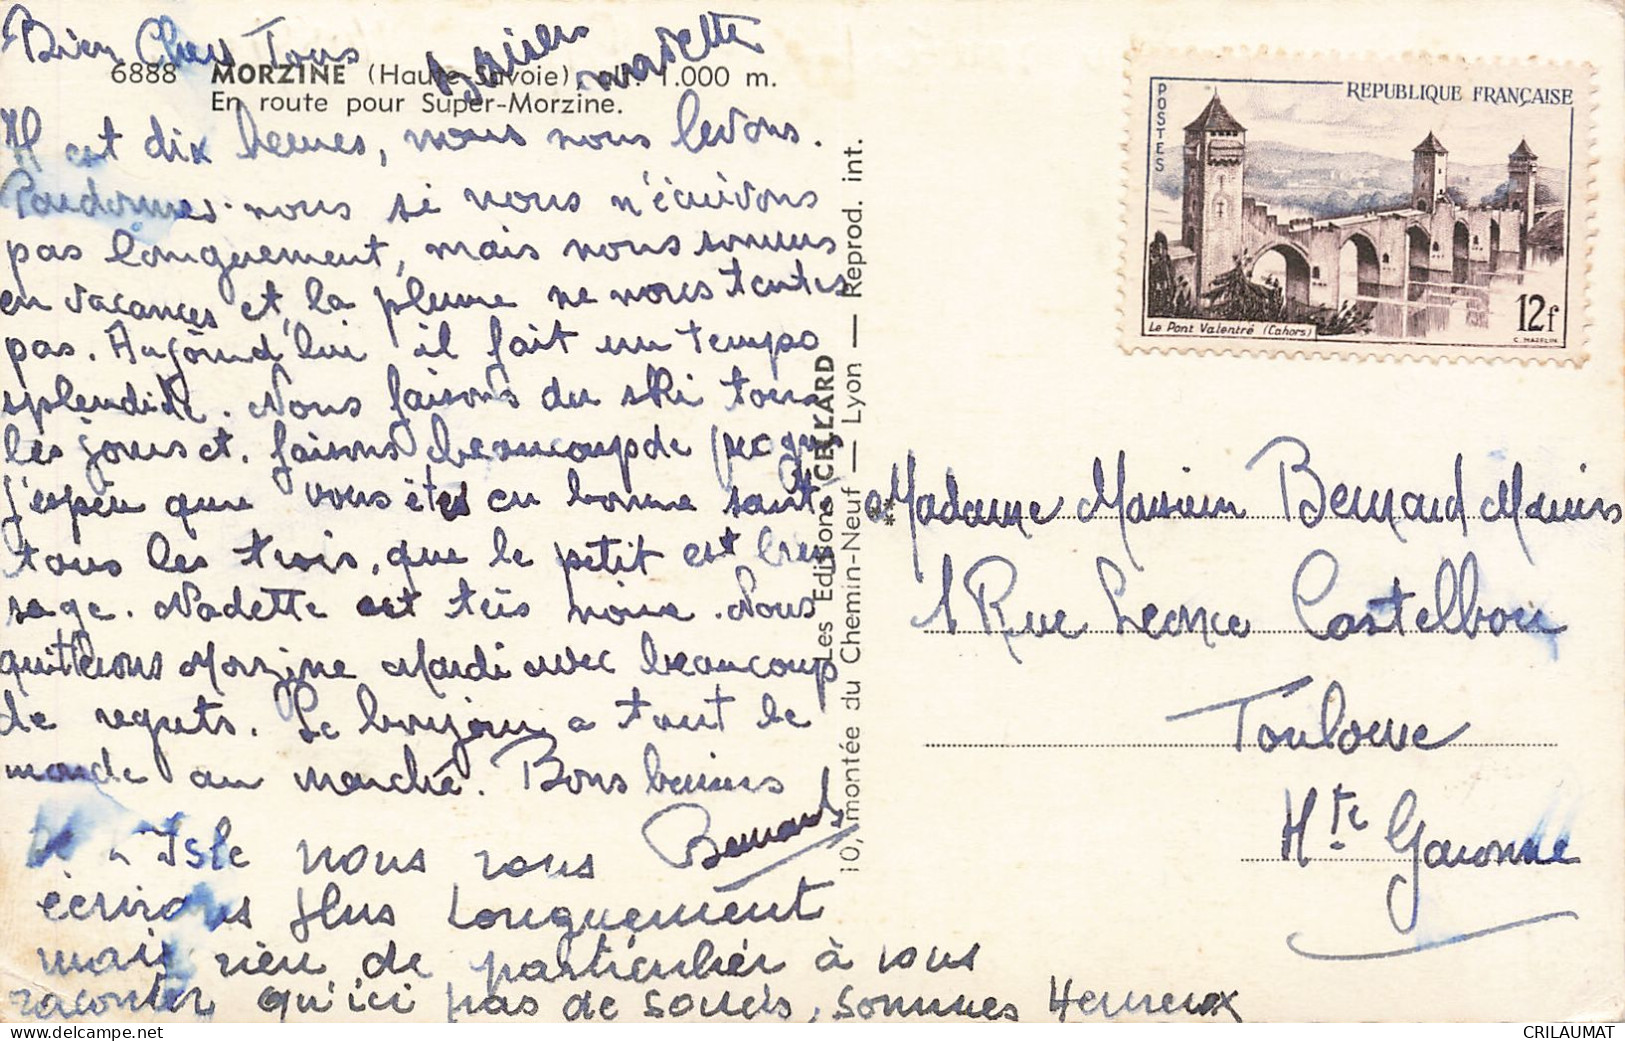 Bien Chers Tous
Baisers
Nadette
6888 MORZINE (Haute-Savoie), alt. 1.000 m.
En route pour Super-Morzine.
Il est dix heures, nous nous levons.
Pardonnez-nous si nous n'écrivons
pas longuement, mais nous sommes
en vacances et la plume ne nous tentes
pas. Aujourd'hui il fait un temps
splendide. Nous faisons du ski tous
les jours et faisons beaucoup de progrès
J'espère que vous êtes en bonne santé
tous les trois, que le petit est bien
sage. Nadette est très noire. Nous
quitterons Morzine Mardi avec beaucoup
de regrets. Le bonjour a tout le
monde au marché. Bons baisers
Bernard
Isle nous vous
écrirons plus longuement
mais rien de particulier à vous
raconter qu'ici pas de soucis, sommes Heureux
Les Editions CELLARD
10, montée du Chemin-Neuf — Lyon — Reprod. int.
POSTES
REPUBLIQUE FRANÇAISE
12f
Le Pont Valentré (Cahors)
C. MAZELIN
Madame Monsieur Bernard
1 Rue Leonce Castelbou
Toulouse
Hte Garonne
CRILAUMAT